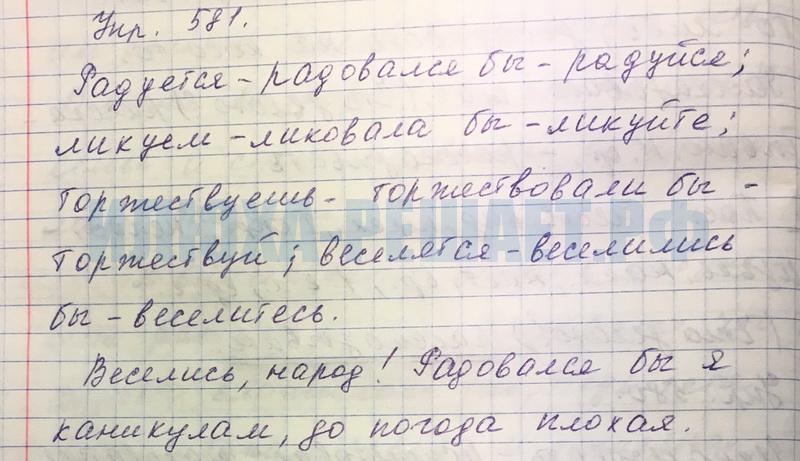 Упр. 581.
Радуется – радовался бы – радуйся;
ликуем – ликовала бы – ликуйте;
торжествуешь – торжествовали бы –
торжествуй; веселятся – веселились
бы – веселитесь.
Веселись, народ! Радовался бы я
каникулам, до погода плохая.